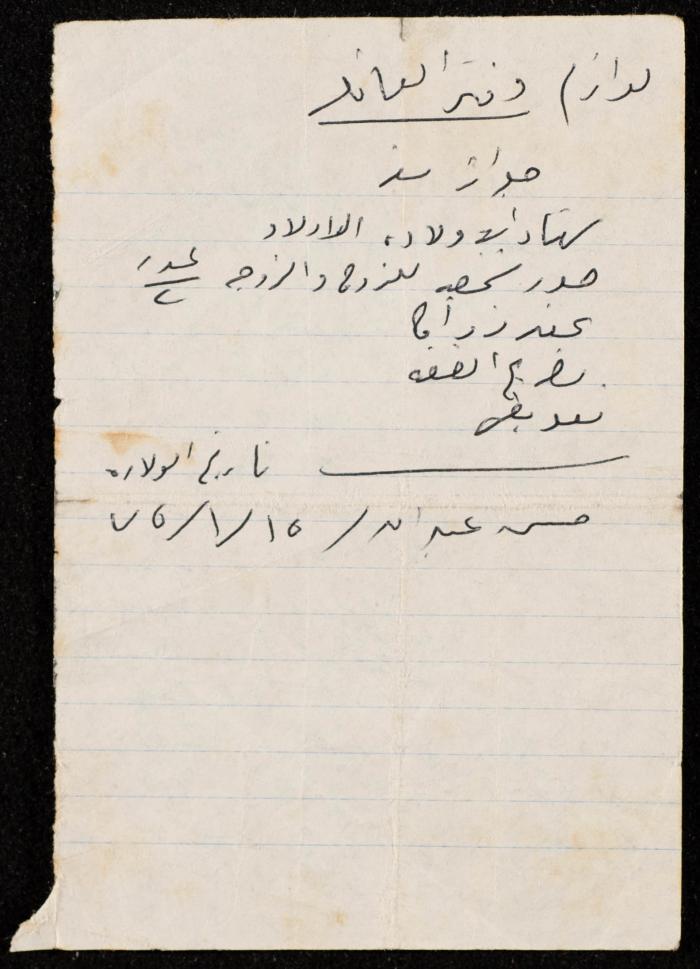 لوازم دفتر العائله
جواز سفر
شهادة ولاده الاولاد
صور شخصيه للزوج والزوجه عدد ٢
عقد زواج
تعريف
تاريخ الولاده
حسن عبدالله / ١٥ / ١ / ٧٥